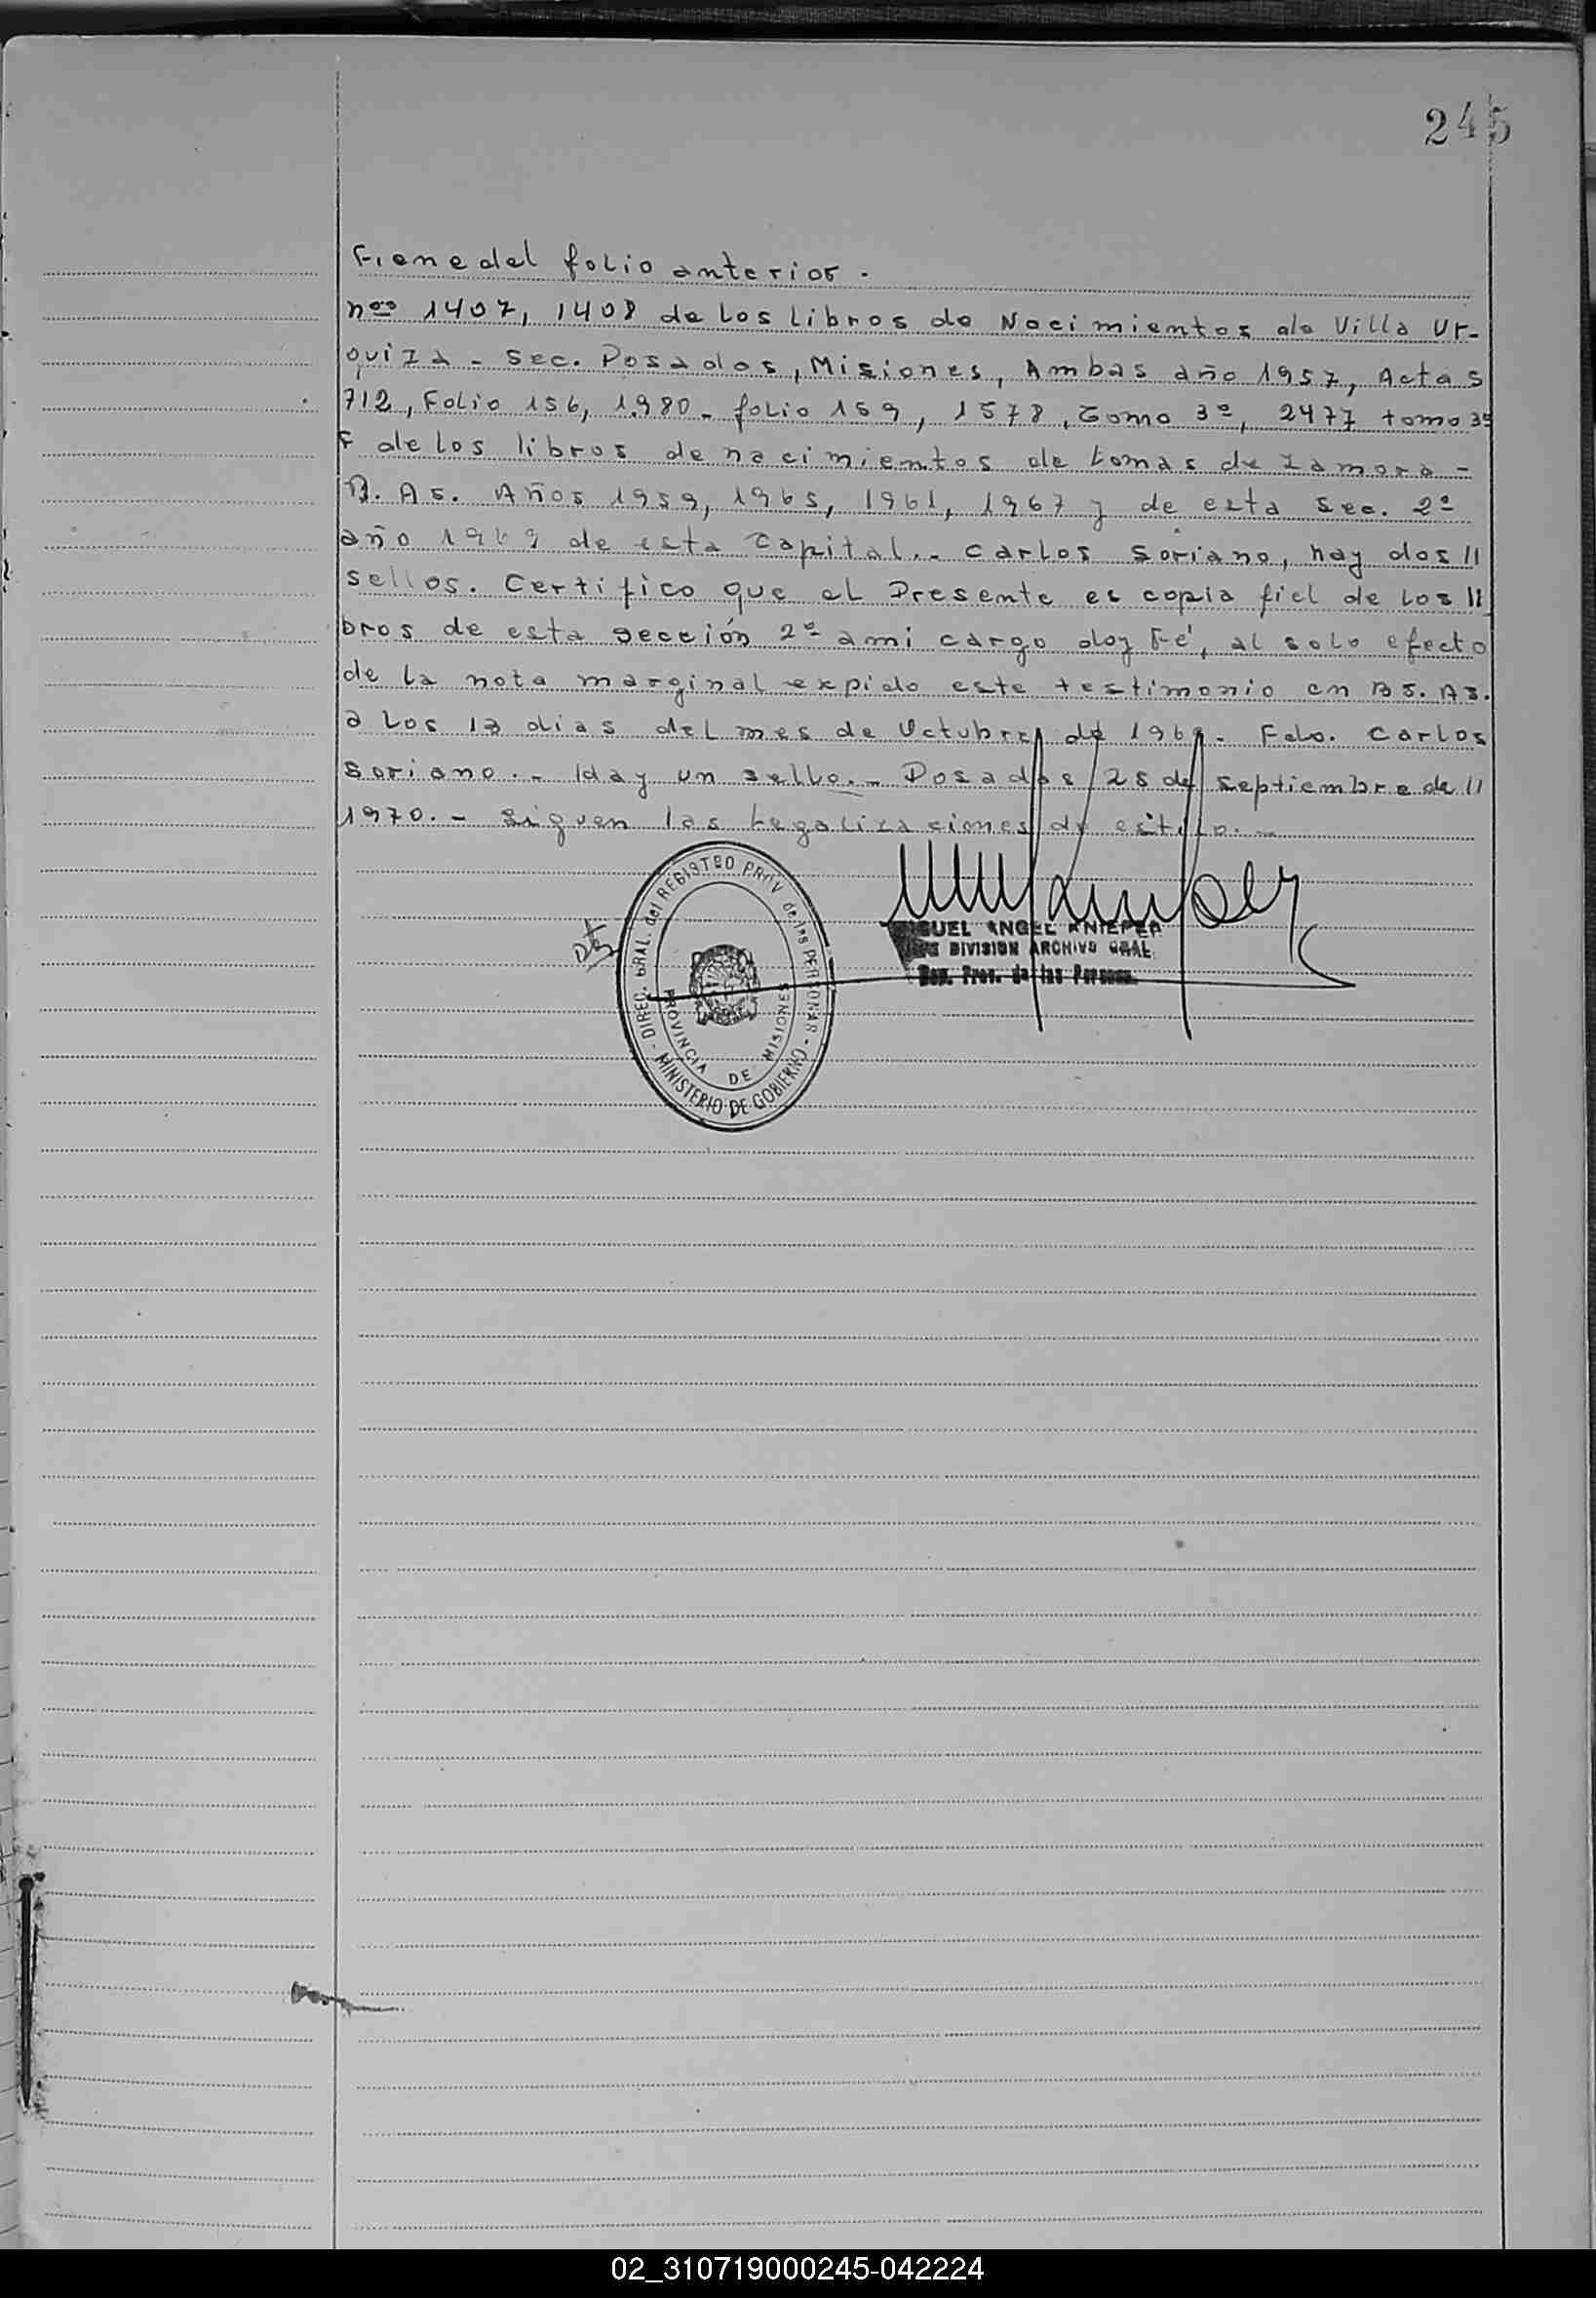 245
Viene del folio anterior.
nos 1407, 1408 de los libros de Nacimientos de Villa Ur-
quiza - Sec. Posadas, Misiones, Ambas año 1957, Actas
712, Folio 156, 1980 - folio 159, 1578, Tomo 3º, 2477 tomo 3º
F de los libros de nacimientos de Lomas de Zamora -
B. As. Años 1959, 1965, 1961, 1967 y de esta Sec. 2ª
año 1969 de esta Capital.- Carlos Soriano, hay dos //
sellos. Certifico que el Presente es copia fiel de los li
bros de esta sección 2ª a mi cargo doy Fé, al solo efecto
de la nota marginal expido este testimonio en Bs. As.
a los 13 dias del mes de Octubre de 1969. Fdo. Carlos
Soriano.- Hay un sello.- Posadas 28 de Septiembre de //
1970.- Siguen las Legalizaciones de estilo.-
DIREC. GRAL. del REGISTRO PROV. de las PERSONAS - MINISTERIO DE GOBIERNO -
PROVINCIA DE MISIONES
MIGUEL ANGEL KNIEPER
DIVISION ARCHIVO GRAL.
Prov. de las Personas
02_310719000245-042224